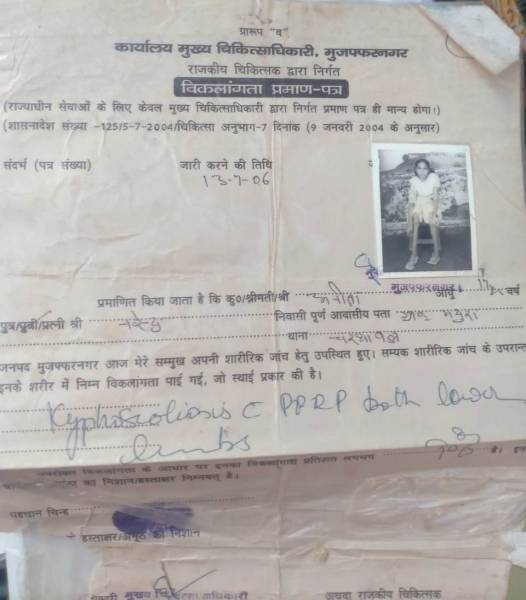 प्रारूप "ब"
कार्यालय मुख्य चिकित्साधिकारी, मुजफ्फरनगर
राजकीय चिकित्सक द्वारा निर्गत
विकलांगता प्रमाण-पत्र
(राज्याधीन सेवाओं के लिए केवल मुख्य चिकित्साधिकारी द्वारा निर्गत प्रमाण पत्र ही मान्य होगा।)
(शासनादेश संख्या -125/5-7-2004/चिकित्सा अनुभाग-7 दिनांक (9 जनवरी 2004 के अनुसार)
संदर्भ (पत्र संख्या) जारी करने की तिथि
13-7-06
मुजफ्फरनगर।
प्रमाणित किया जाता है कि कु०/श्रीमती/श्री आयु वर्ष
पुत्र/पुत्री/पत्नी श्री निवासी पूर्ण आवासीय पता
थाना
जनपद मुजफ्फरनगर आज मेरे सम्मुख अपनी शारीरिक जांच हेतु उपस्थित हुए। सम्यक शारीरिक जांच के उपरान्त
इनके शरीर में निम्न विकलांगता पाई गई, जो स्थाई प्रकार की है।
Kyphoscoliosis C PPRP both lower
limbs
विकलांगता के आधार पर इनका विकलांगता प्रतिशत लगभग है। इन
का निशान/हस्ताक्षर निम्नवत् है।
पहचान चिन्ह
हस्ताक्षर/अंगूठे का निशान
मुख्य चिकित्सा अधिकारी अथवा राजकीय चिकित्सक